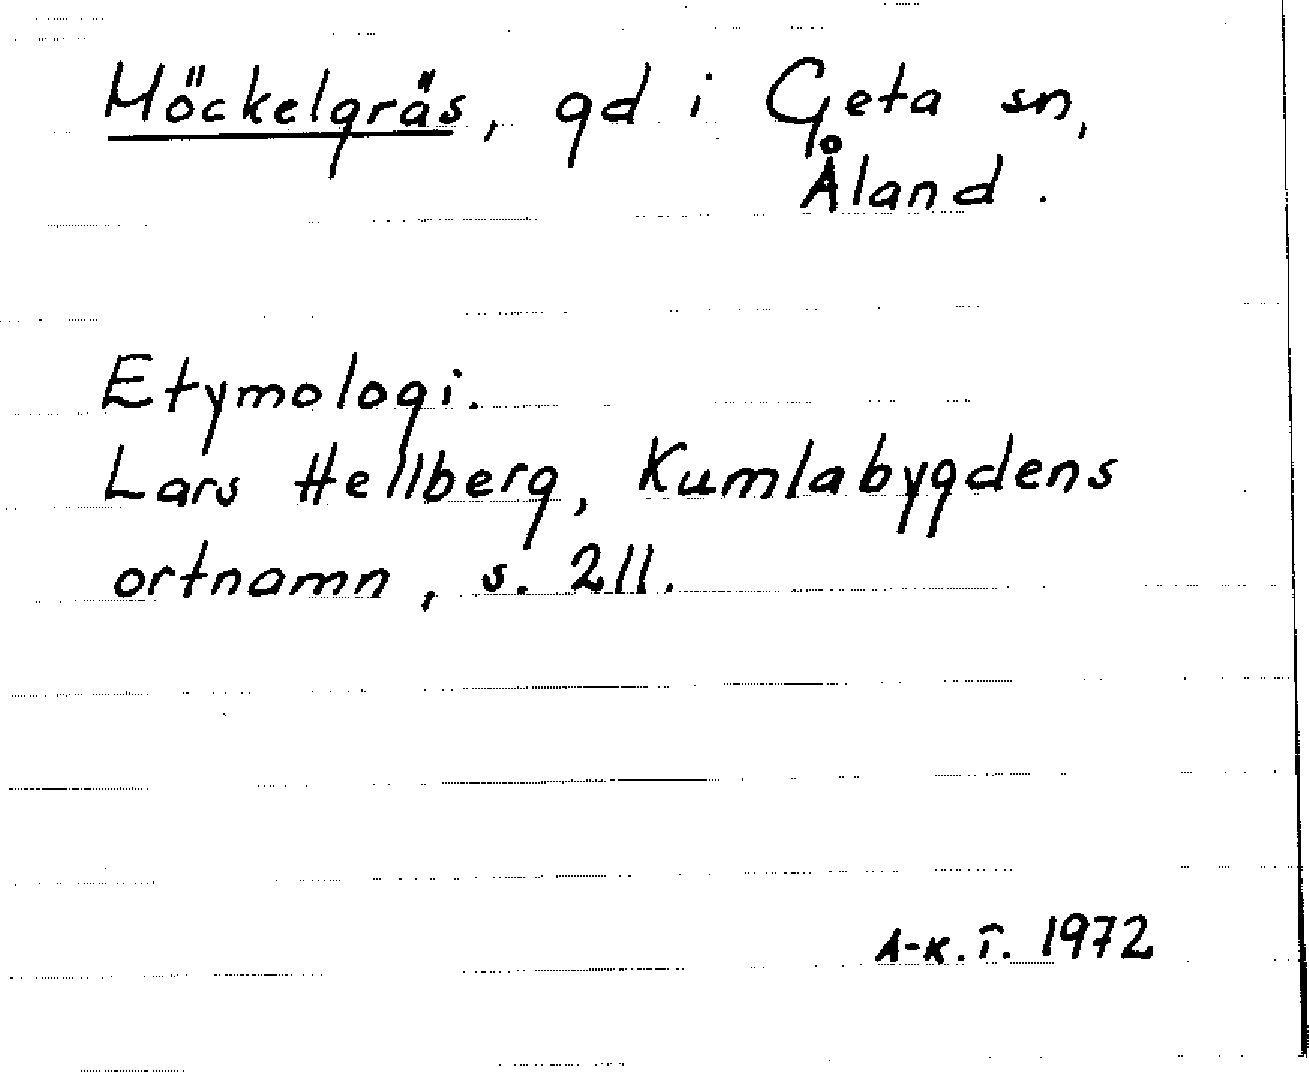 Möckelgräs, gd i Geta sn,
Åland.
Etymologi.
Lars Hellberg, Kumlabygdens
ortnamn, s. 211.
A-K.T. 1972